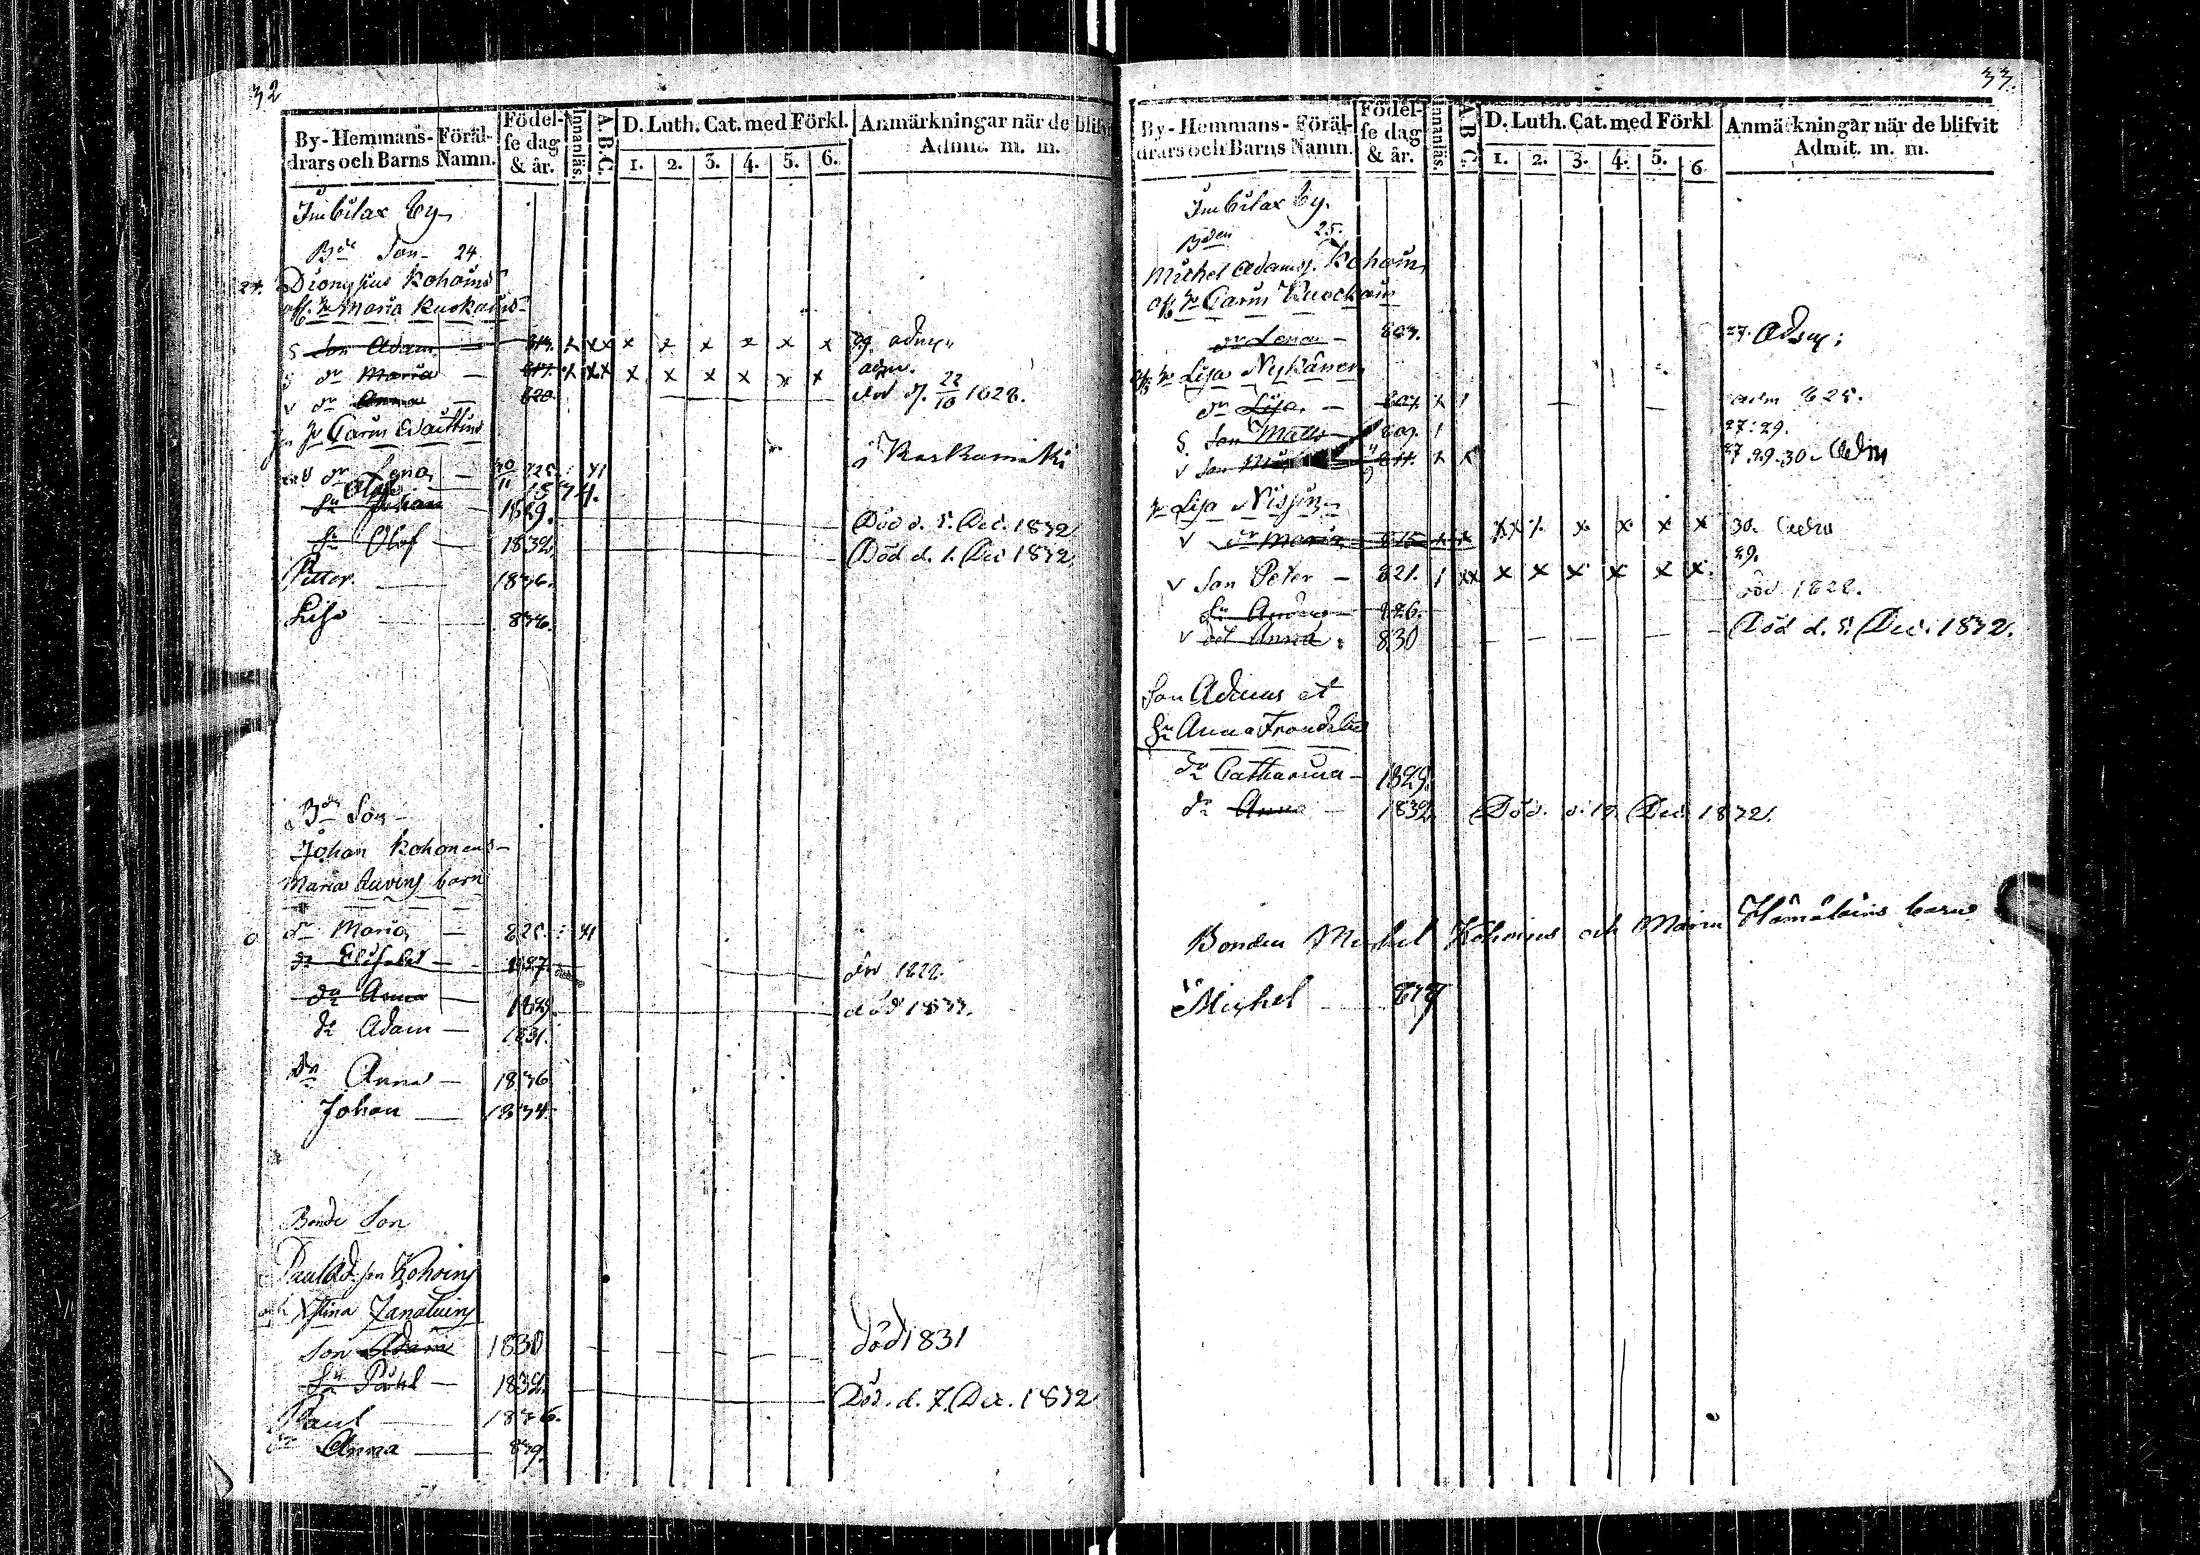 32
By-Hemmans-Föräl-
drars och Barns Namn.
Födel-
se dag
& år.
Innanläs.
A.B.C.
D. Luth. Cat. med Förkl.
1. 2. 3. 4. 5. 6.
Anmärkningar när de blifvit
Admit. m. m.
Imbilax by
Bde Son 24
Dionysius Kohoins
Maria Kuokains
S Son Adam x xx x x x x x x 29. adm.
S dr Maria 817. x xx x x x x x x adm.
v dr Anna 820 död d. 22/10 1828.
hu Carin
dr Lena 825. 41 i Kaskamäki
Olof
sn Johan 1829. Död d. 5. Dec. 1832
sn Olof 1832. Död d. 1. Dec 1832
Petter 1836.
Lisa 836.
Bde Son
Johan Kohonens
Maria barn
dr Maria 825. 41
dr Elisabet 1827. död 1828.
dr Anna 1829. död 1833.
Adam 1831.
dr Anna 1836
Johan 1834.
Bonde Son
Paul Ad.son Kohoins
och Xstina
Son Adam 1830 död 1831
sn Påhl 1832. Död. d. 7. Dec. 1832
Paul 1836.
dr Anna 839.
33.
By-Hemmans-Föräl-
drars och Barns Namn.
Födel-
se dag
& år.
Innanläs.
A.B.C.
D. Luth. Cat. med Förkl
1. 2. 3. 4. 5. 6
Anmärkningar när de blifvit
Admit. m. m.
Imbilax by.
Bden 25.
Michel Adams. Kohoins
Carin Kuockain
dr Lena 803. 27. Adm;
hu Lisa Nykänen
dr Lisa 807. x 1 adm 825.
S. Son Matts 809. 1 27:29.
v Son 811. x x 27.29.30. Adm
hu Lisa Nissin
v dr Maria 815 x x xx x x x x x 30. Adm
29.
v Son Peter 821. 1 xx x x x x x x.
sn Anders 826. död 1828.
v dot Anna 830 Död d. 5. Dec. 1832.
Son Adams et
hu Anna Frondelin
dr Catharina 1829.
dr Anna 1832. Död. d. 19. Dec. 1832.
Bonden Michel Kohoins och Maria Hämäläins barn
Michel